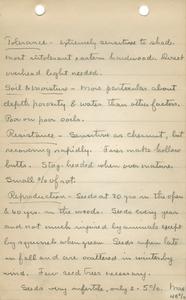 Tolerance - extremely sensitive to shade.
Most intolerant eastern hardwood. Direct
overhead light needed.
Soil & moisture - More particular about
depth porosity & water than other factors.
Poor on poor soils.
Resistance - Sensitive as chestnut, but
recovering rapidly. Fires make hollow
butts. Stag-headed when over mature.
Small % of rot.
Reproduction - Seeds at 20 yrs in the open
& 40 yrs. in the woods. Seeds every year
and not much injured by animals except
by squirrels when green. Seeds ripen late
in fall and are scattered in winter by
wind. Few seed trees necessary.
Seeds very infertile, only 2-5%.